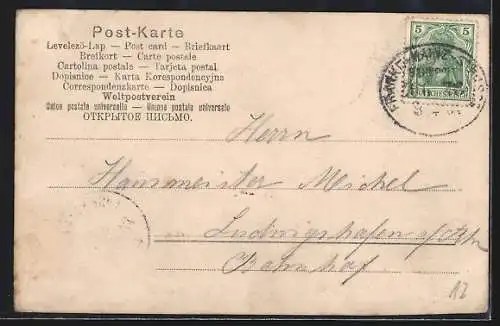 Post-Karte
Levelező-Lap — Post card — Briefkaart
Brefkort — Carte postale
Cartolina postale — Tarjeta postal
Dopisnice — Karta Korespondencyjna
Correspondenzkarte — Dopisnica
Weltpostverein
Union postale universelle — Unione postale universale
ОТКРЫТОЕ ПИСЬМО.
5 5
Herrn
Hausmeister Michel
Ludwigshafen a/Rh
Bahnhof
12